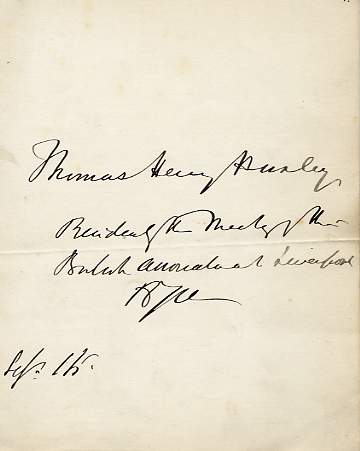 Thomas Henry Huxley
President of the Meeting of the
British Association at Liverpool
1870
Sept. 15.